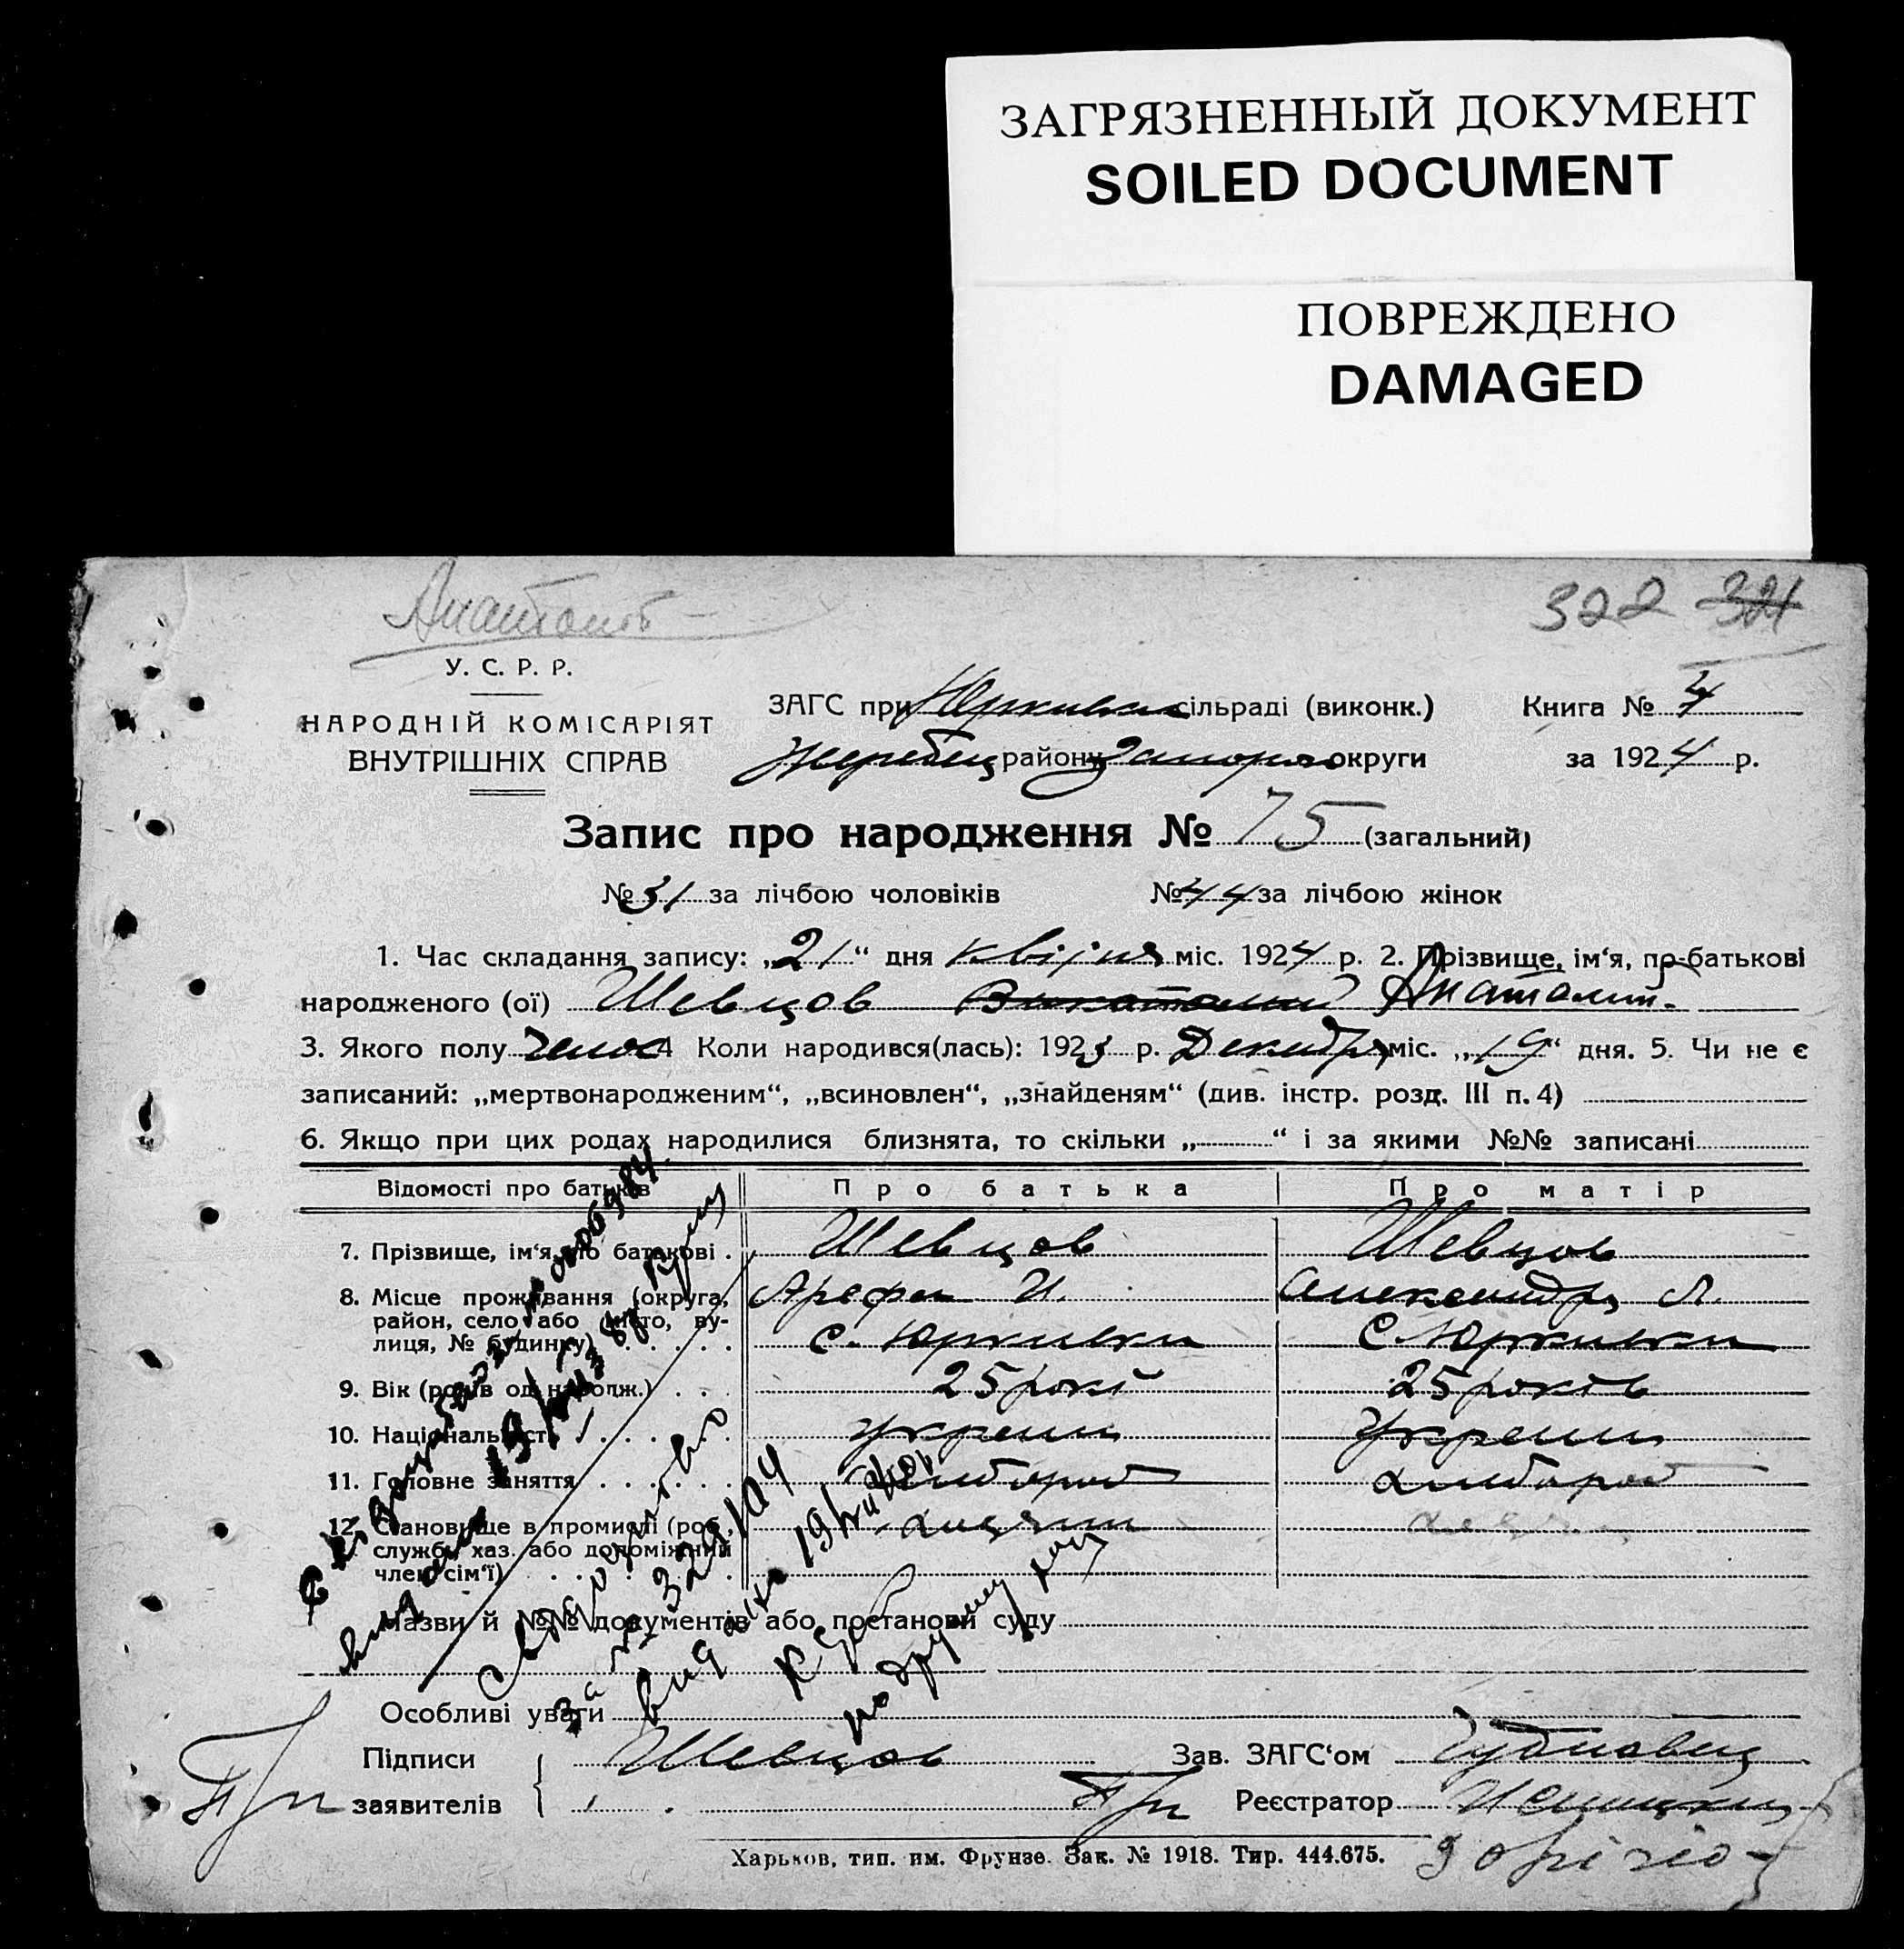 ЗАГРЯЗНЕННЫЙ ДОКУМЕНТ
SOILED DOCUMENT
ПОВРЕЖДЕНО
DAMAGED
322 321
У. С. Р. Р.
НАРОДНІЙ КОМІСАРІЯТ
ВНУТРІШНІХ СПРАВ
ЗАГС при Юркивки сільраді (виконк.) Книга № 4
Жеребец району Запорож округи за 1924 р.
Запис про народження № 75 (загальний)
№ 31 за лічбою чоловіків № 44 за лічбою жінок
1. Час складання запису: „21“ дня квітня міс. 1924 р. 2. Прізвище, ім‘я, по-батькові
народженого (ої) Шевцов Анатолій
3. Якого полу чолов 4 Коли народився(лась): 1923 р. Декабря міс. „19“ дня. 5. Чи не є
записаний: „мертвонародженим“, „всиновлен“, „знайденям“ (див. інстр. розд. III п. 4)
6. Якщо при цих родах народилися близнята, то скільки „ “ і за якими №№ записані
Відомості про батьків Про батька Про матір
7. Прізвище, ім‘я, по батькові . Шевцов Шевцов
8. Місце проживання (округа, Арефа И. Александра Л.
район, село або місто, ву-
лиця, № будинку) . . . . . с. Юркивки с. Юркивки
9. Вік (років од народж.) . . . 25 рокі 25 років
10. Національність . . . . . . украин украин
11. Головне заняття . . . . . . хлібороб хлібороб
12. Становище в промислі (роб.,
службу хаз. або допоміжний
член сім‘ї) . . . . . . . .
Свідоцтво
за № 329104
видано 19
по другому разу
Назви й №№ документів або постанови суду
Особливі уваги
Підписи Шевцов Зав. ЗАГС‘ом
заявителів Реєстратор
Харьков, тип. им. Фрунзе. Зак. № 1918. Тир. 444.675.